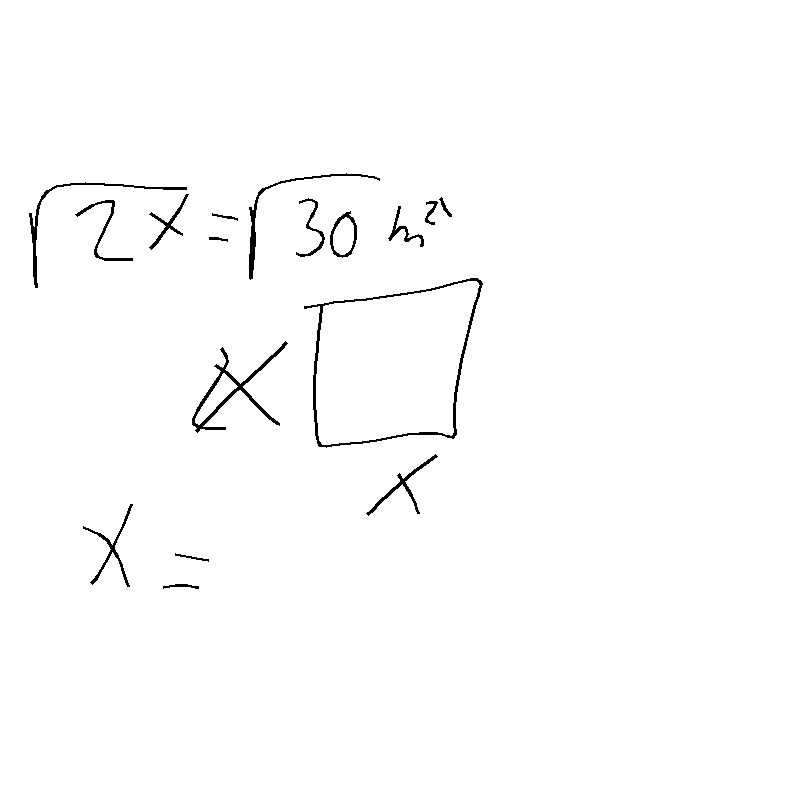 √2x = √30 m²
x
x
x =